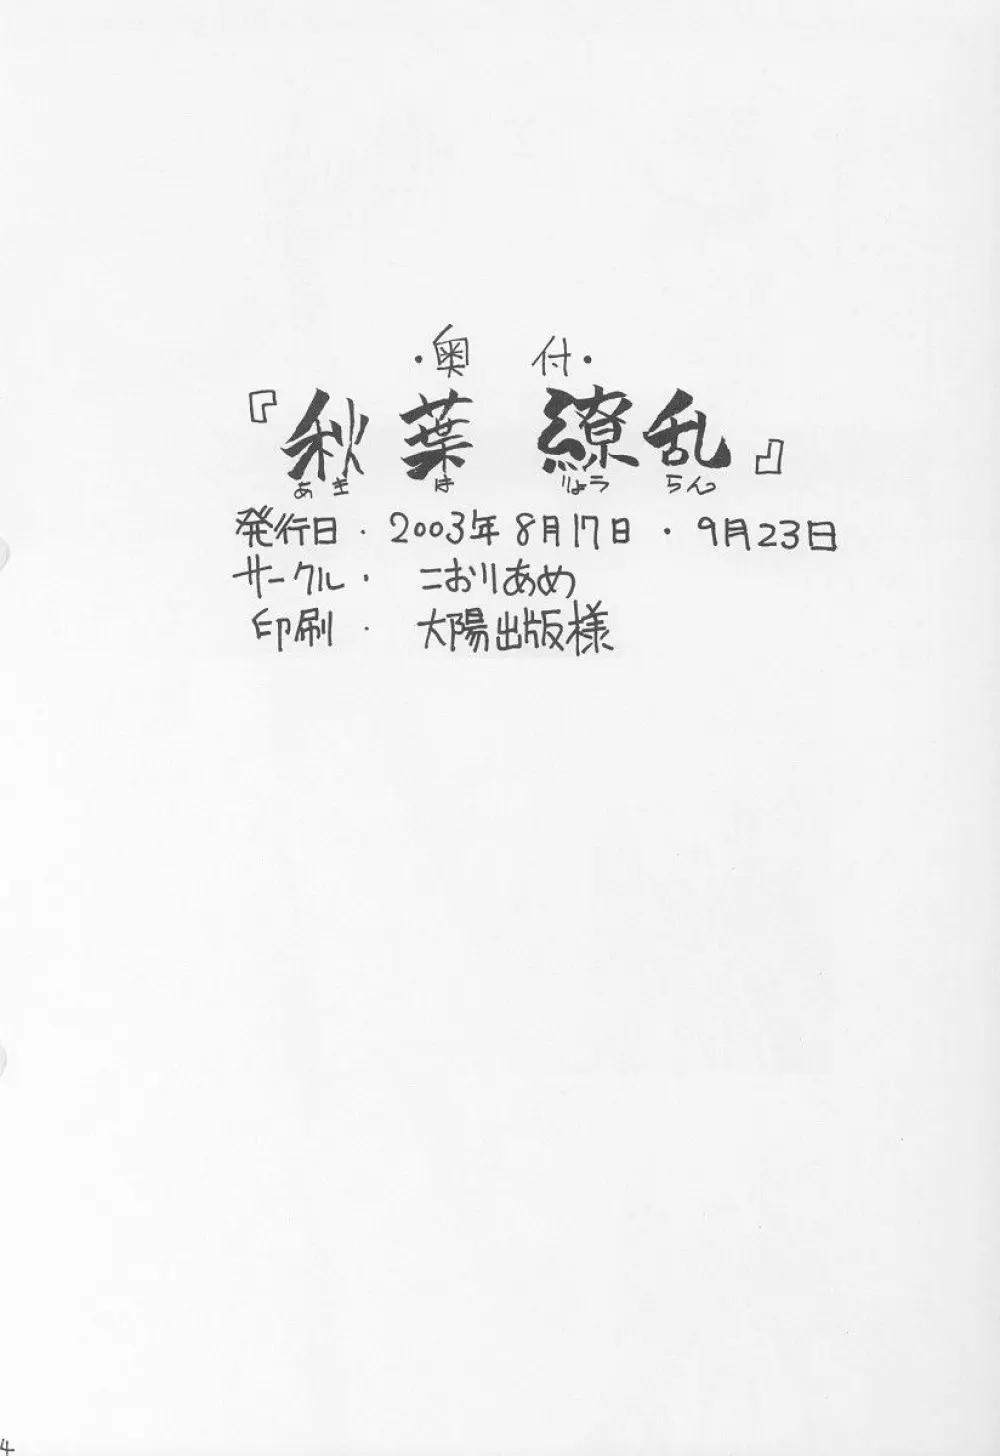 ・奥 付・
『秋葉 繚乱』
あき は りょう らん
発行日・2003年8月17日・9月23日
サークル・こおりあめ
印刷・太陽出版様
4